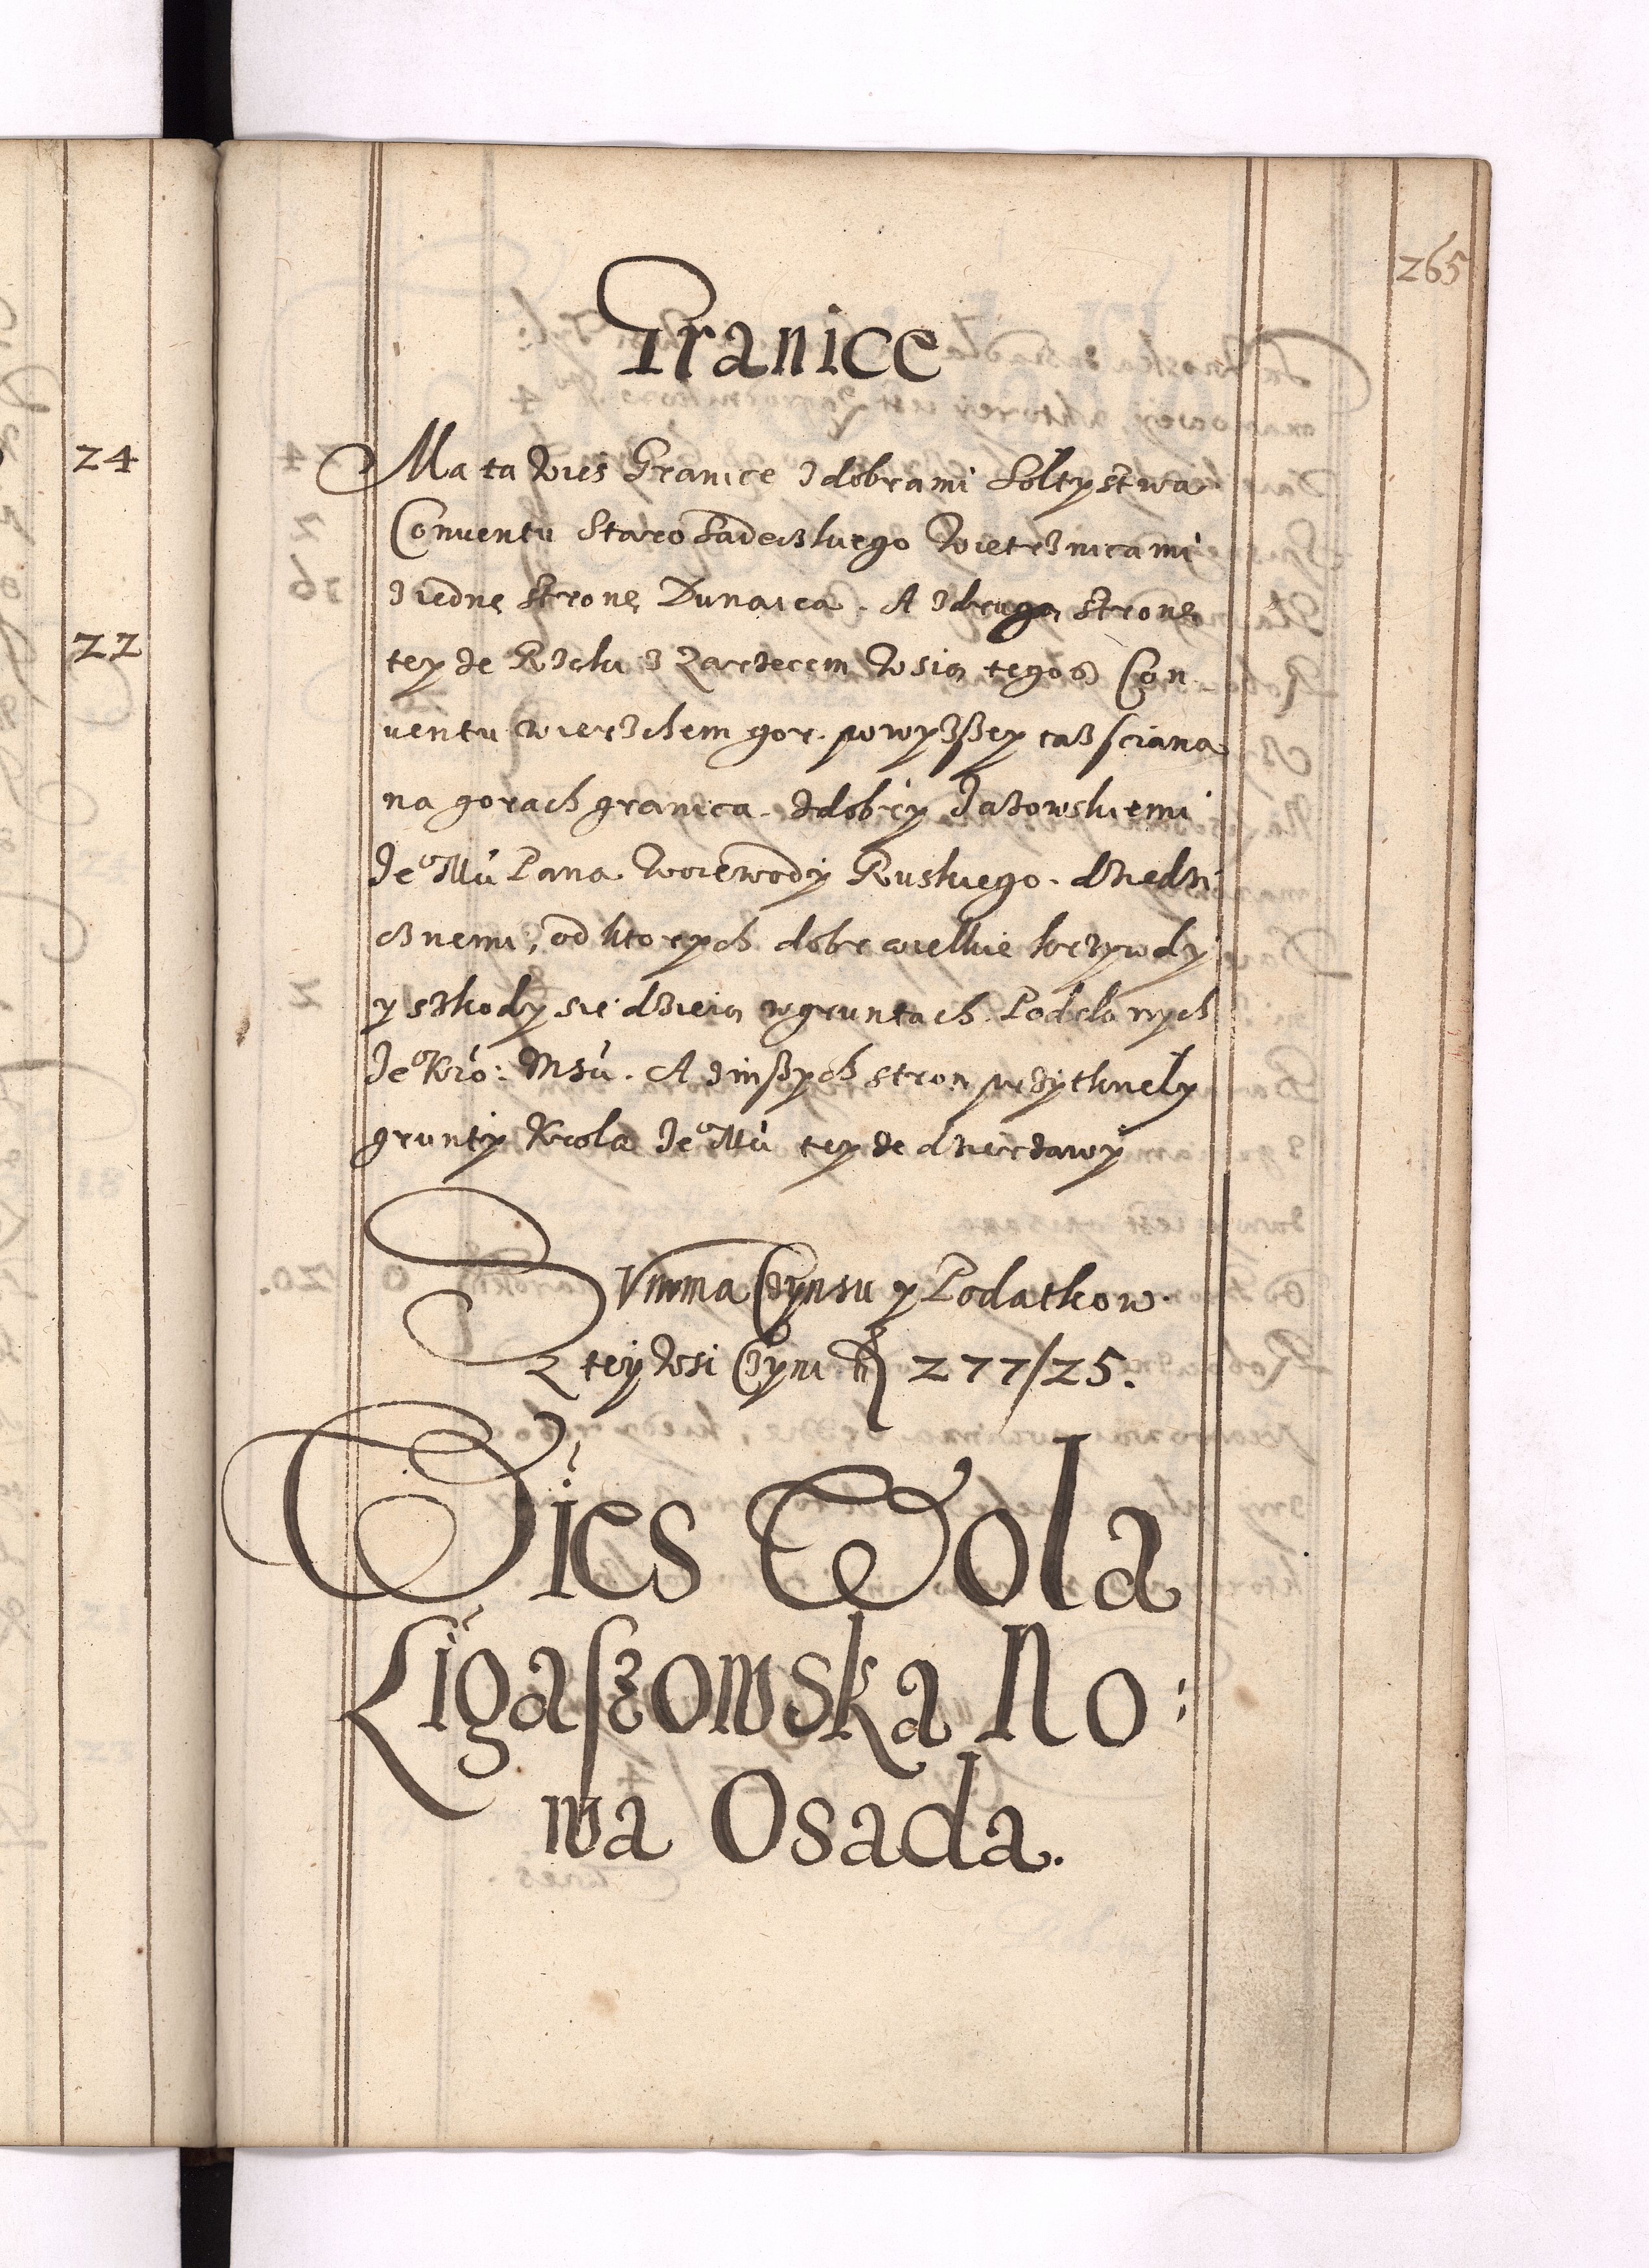 265
Granice
Ma ta Wieś Granice z dobrami Soltystwa
Conventu Staro Sadeczkiego Wietrznicami
z iednę stronę Dunaica. A z drugą stronę
teyże Rzeki z Zarzecem Wsią tegoż Con
ventu wierzchem gor. powyzszey czasciana
na gorach granica. z dobry Jazowskiemi
Jeo Mci Pana Woiewody Ruskiego. dziedzi
cznemi, od ktorych dobr wielkie krzywdy
y szkody sie dzieią w gruntach
Jeo Kro: Msci. A z inszych stron przytkneły
grunty Krola Jeo Mci teyze dzierzawy
Summa Czynsu y Podatkow
Z tey Wsi Czyni fl 277/25.
Wies Wola
Ligaszowska No:
wa Osada.
24
22